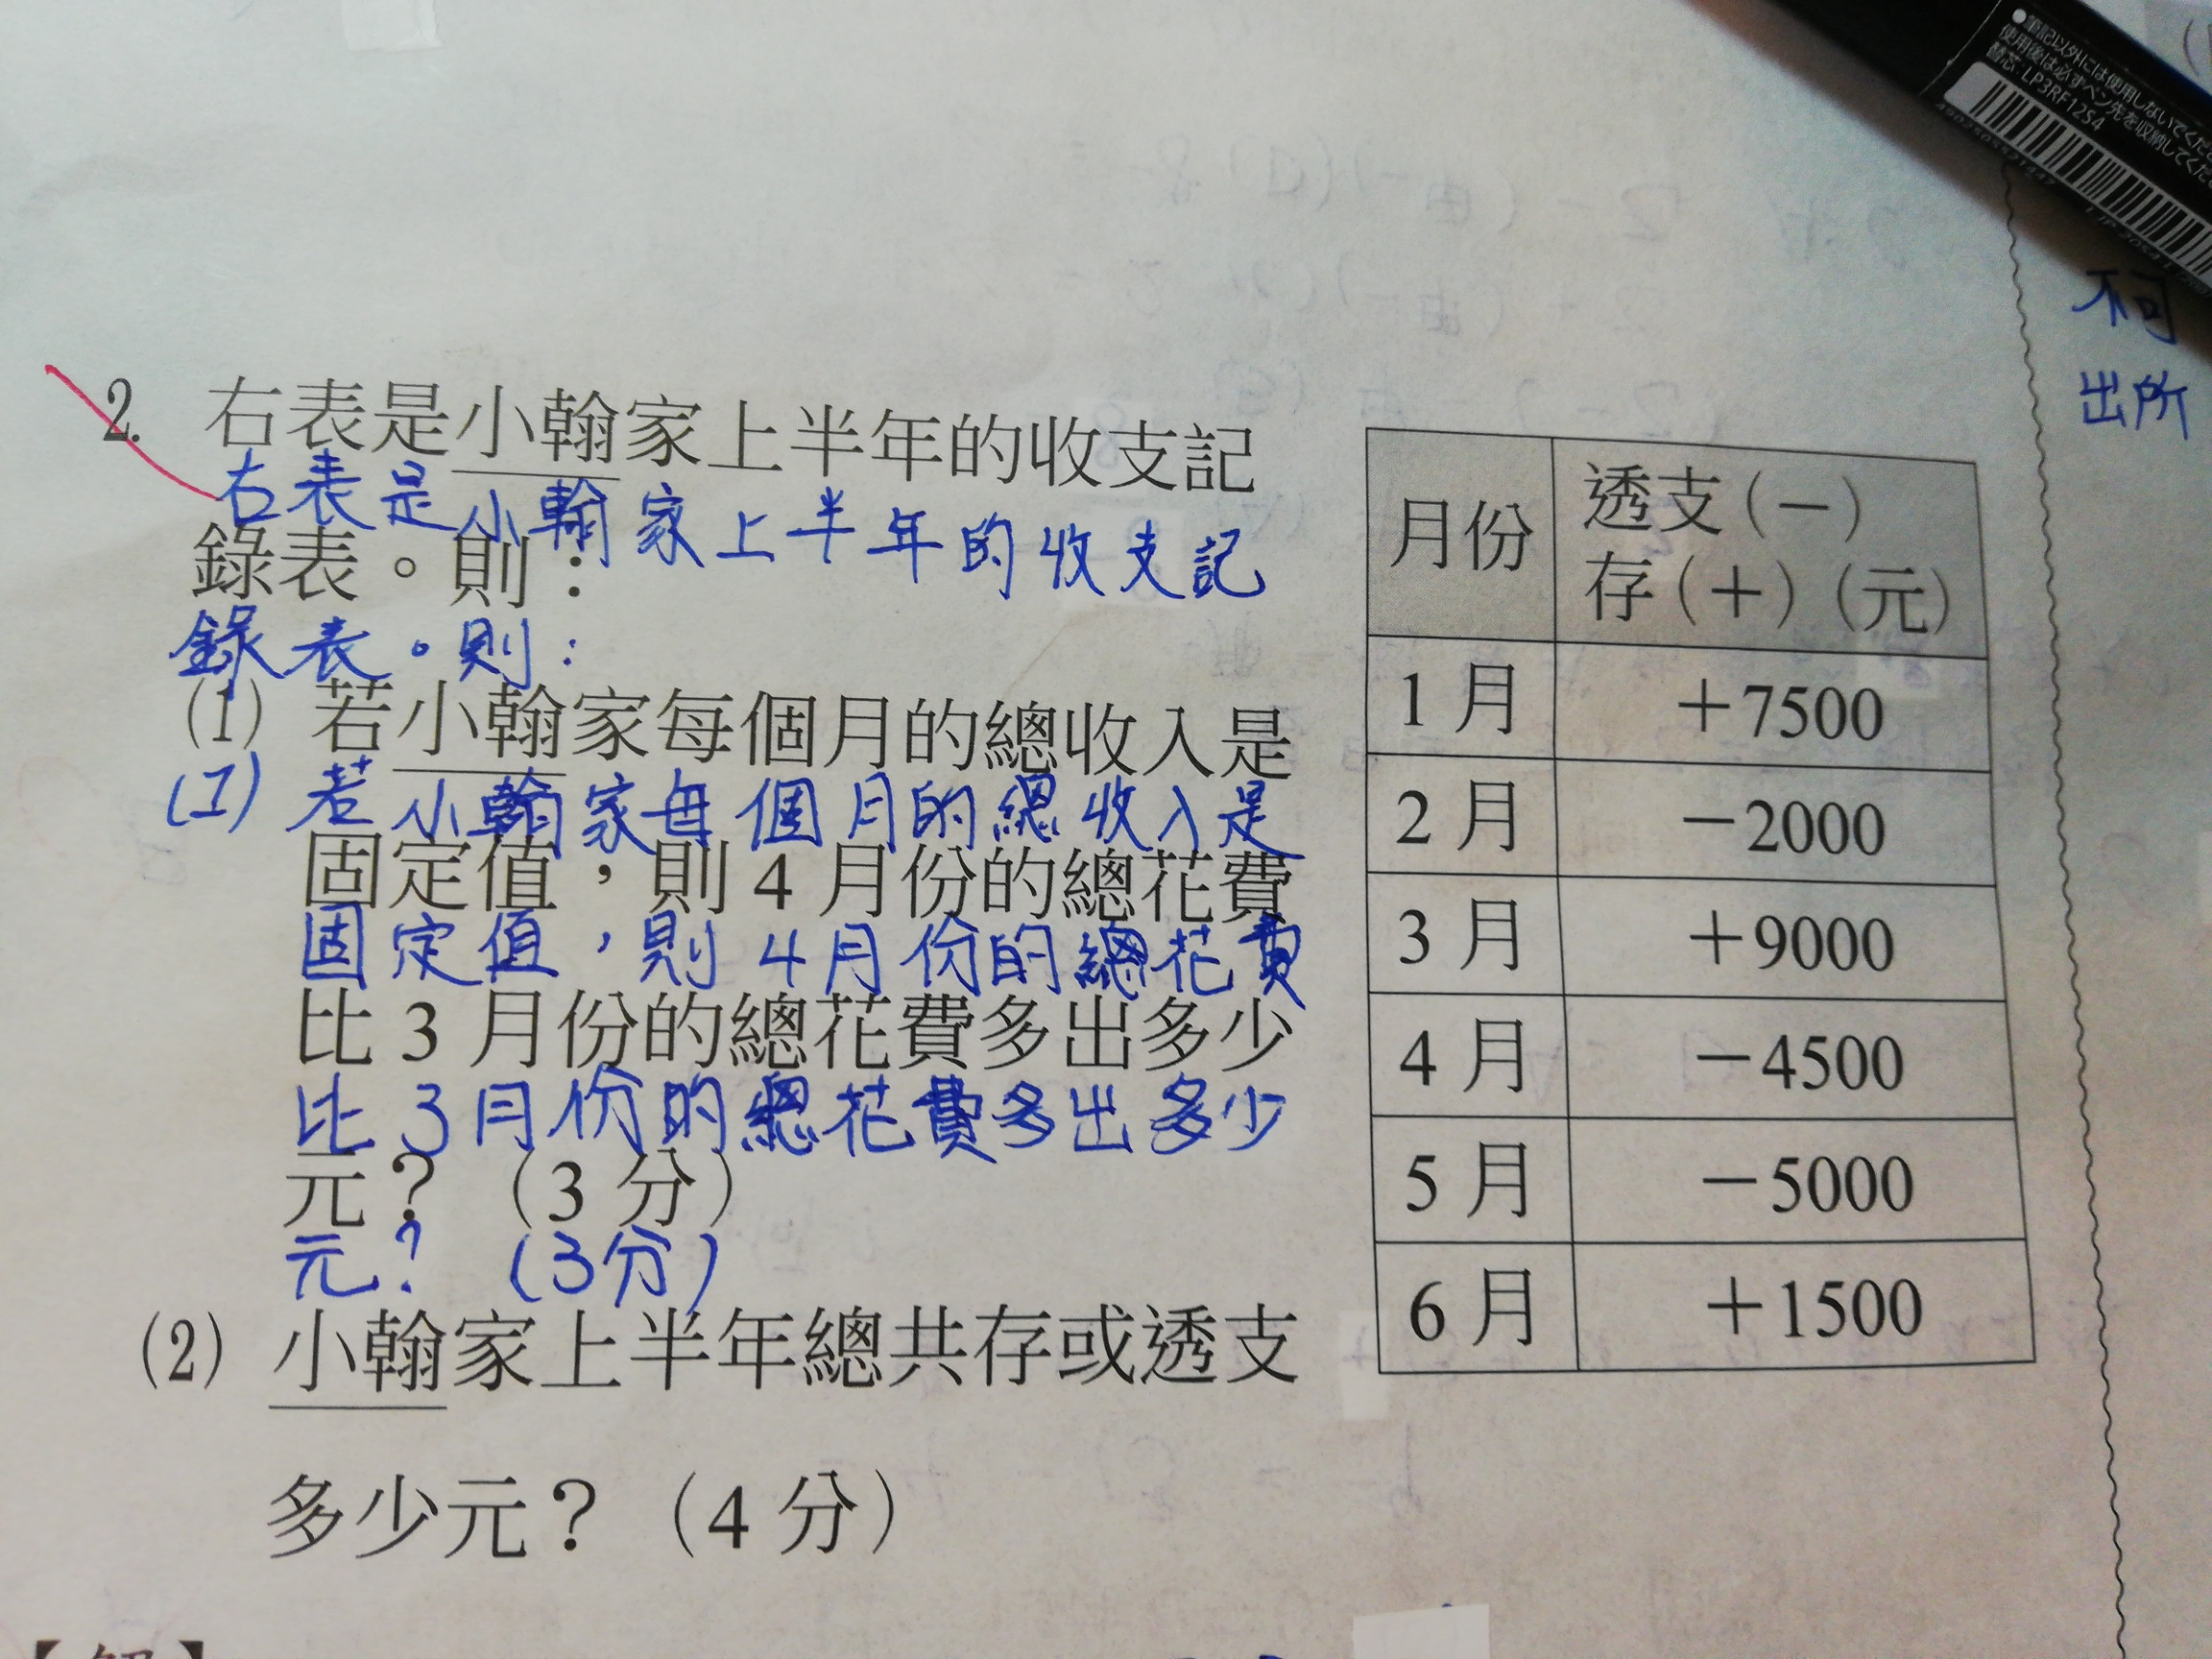 ●筆記以外には使用しないでください
使用後は必ずペン先を収納してくだ
替芯:LP3RF12S4
出所
2. 右表是小翰家上半年的收支記
右表是小翰家上半年的收支記
錄表。則:
錄表。則:
(1) 若小翰家每個月的總收入是
(1) 若小翰家每個月的總收入是
固定值,則 4 月份的總花費
固定值,則4月份的總花費
比 3 月份的總花費多出多少
比3月份的總花費多出多少
元?(3 分)
元?(3分)
(2) 小翰家上半年總共存或透支
多少元?(4 分)
月份 透支(-)
存(+)(元)
1 月 +7500
2 月 -2000
3 月 +9000
4 月 -4500
5 月 -5000
6 月 +1500